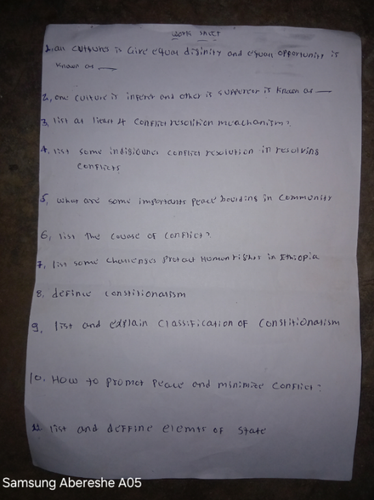 Work sheet
1. all cultures is Give equal diginity and equal opportunity is
known as ___
2, one culture is inferer and other is supperer is known as —
3. list at least 4 conflict resolition mechanism?
4. list some indigioues conflict resolution in resolving
conflicts
5, what are some importants Peace building in community
6, list the couse of conflict?
7. list some challenges protect Human rights in Ethiopia
8. define constitionalism
9. list and explain classification of constitionalism
10. How to promot peace and minimize conflict?
11 list and deffine elemts of state
Samsung Abereshe A05